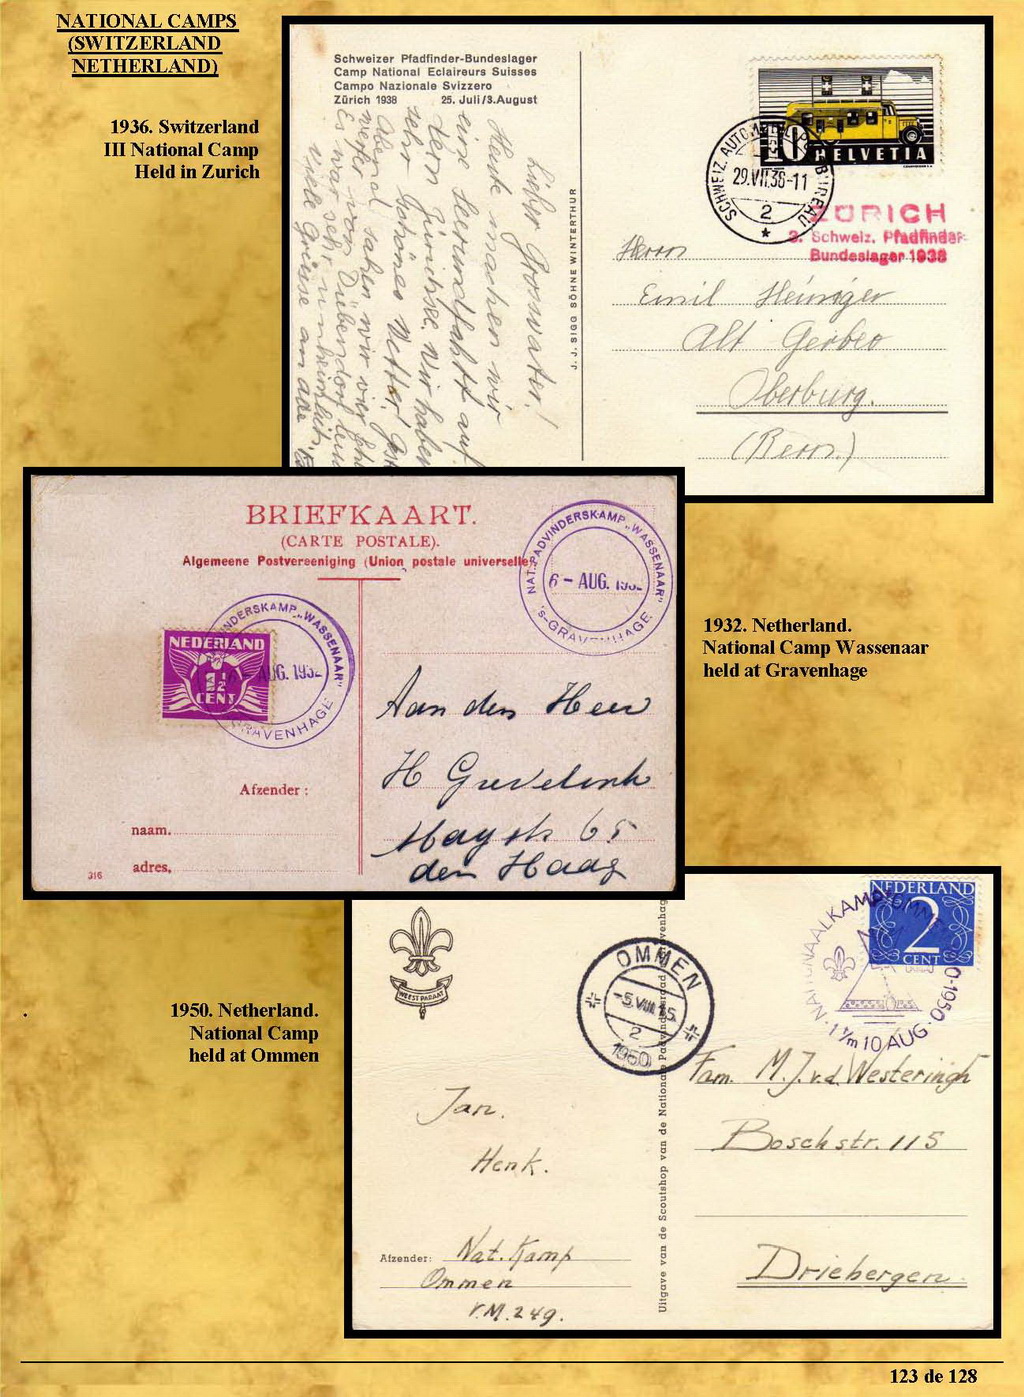 NATIONAL CAMPS
(SWITZERLAND
NETHERLAND)
1936. Switzerland
III National Camp
Held in Zurich
Schweizer Pfadfinder-Bundeslager
Camp National Eclaireurs Suisses
Campo Nazionale Svizzero
Zürich 1938 25. Juli/3.August
Lieber Grossvater!
Heute machen wir
eine Herundfahrt auf
dem Zürichsee. Wir haben
sehr schönes Wetter!
sahen wir vier
von Dübendorf
Es war sehr unheimlich.
Viele Grüsse an alle
J. J. SIGG SÖHNE WINTERTHUR
HELVETIA
10
SCHWEIZ. AUTOMOBIL-POSTBUREAU
29.VII.38-11
2
ZÜRICH
3. Schweiz. Pfadfinder-
Bundeslager 1938
Herrn
Emil Heiniger
Alt Gerber
Oberburg.
(Bern.)
BRIEFKAART.
(CARTE POSTALE).
Algemeene Postvereeniging (Union postale universelle)
NAT. PADVINDERSKAMP "WASSENAAR"
6 - AUG. 1932
's-GRAVENHAGE
NEDERLAND
1½
CENT
PADVINDERSKAMP "WASSENAAR"
AUG. 1932
GRAVENHAGE
Aan den Heer
H Grevelink
65
den Haag
Afzender:
naam.
adres,
316
1932. Netherland.
National Camp Wassenaar
held at Gravenhage
1950. Netherland.
National Camp
held at Ommen
WEEST PARAAT
OMMEN
-5.VIII.15.
2
1950
NEDERLAND
2
CENT
NATIONAALKAMP OMMEN
1 t/m 10 AUG. 1950
Fam. M.J. v.d. Westeringh
Boschstr. 115
Driebergen
Jan.
Henk.
Afzender: Nat. Kamp
Ommen
V.M. 249.
Uitgave van de Scoutshop van de Nationale Padvindersraad
123 de 128